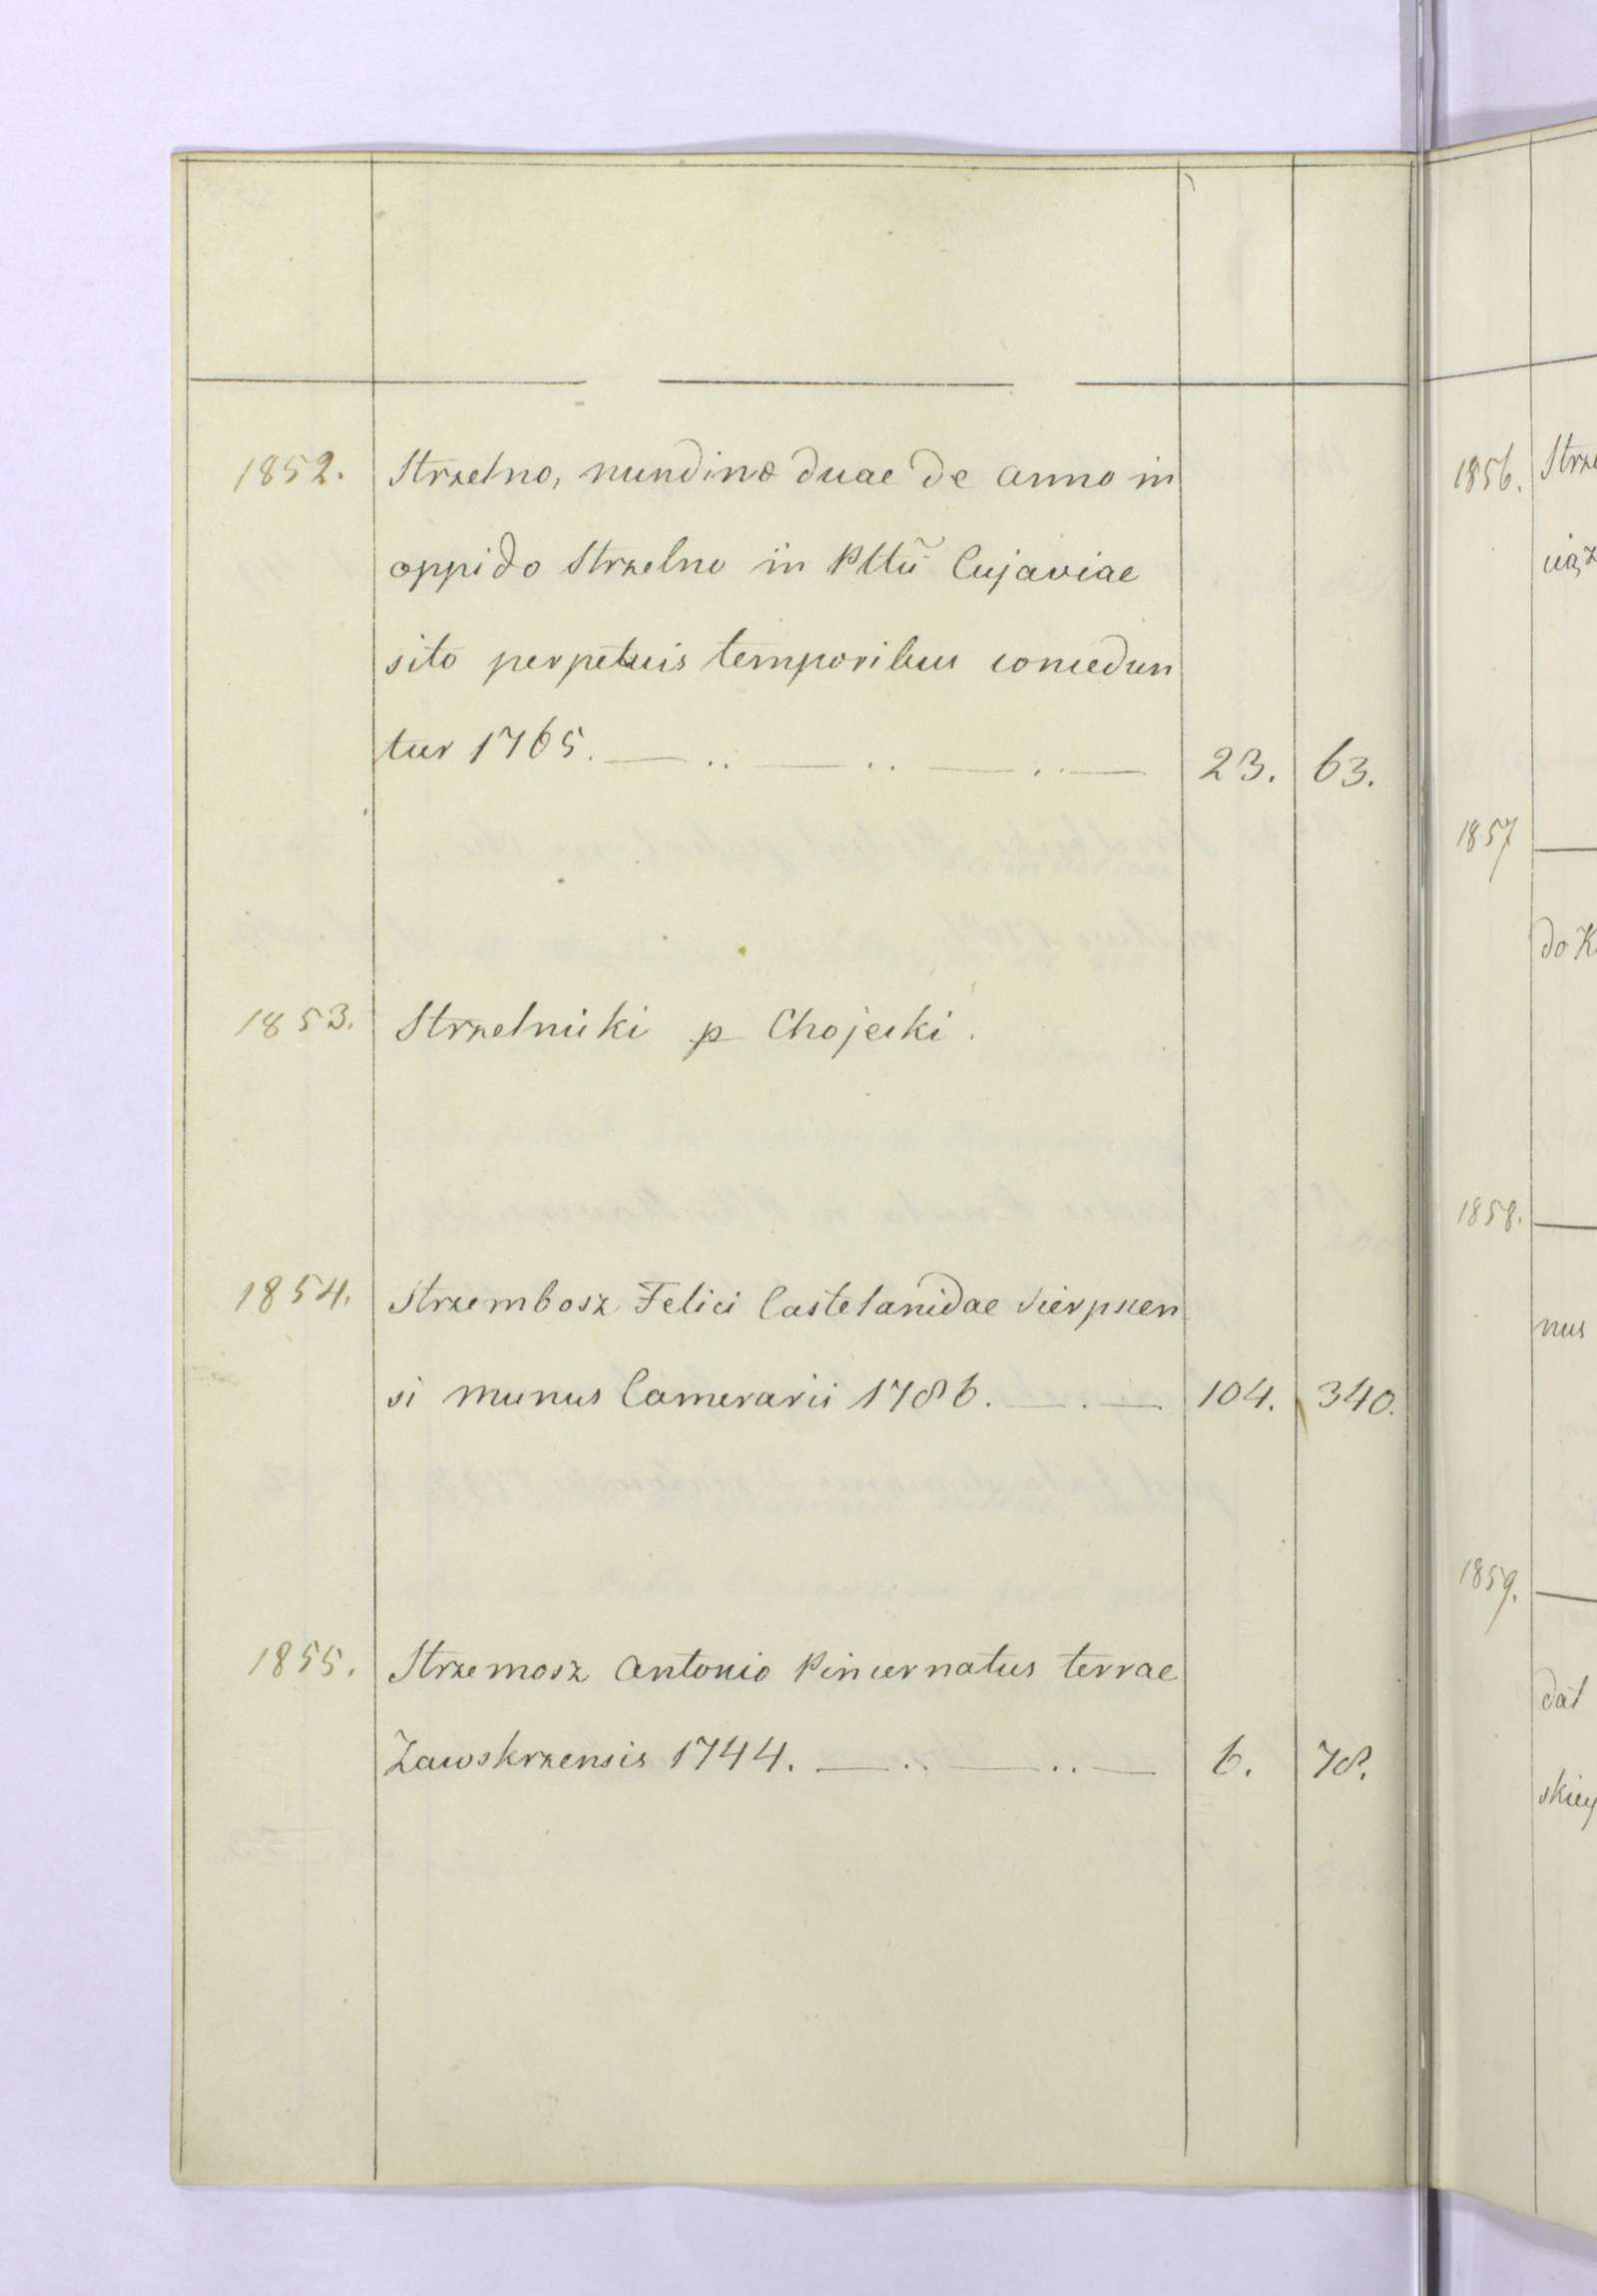 1852. Strzelno, nundinæ duae de anno in
oppido Strzelno in Plttũ Cujaviae
sito perpetuis temporibus concedun
tur 1765. 23. 63.
1853. Strzelnicki p Chojecki.
1854. Strzembosz Felici Castelanidae Sierpscen
si munus Camerarii 1786. 104. 340.
1855. Strzemosz Antonio Pincernatus terrae
Zawskrzensis 1744. 6. 78.
1856. Strze
ciąz
1857
do K
1858.
nus
1859.
dat
skiey